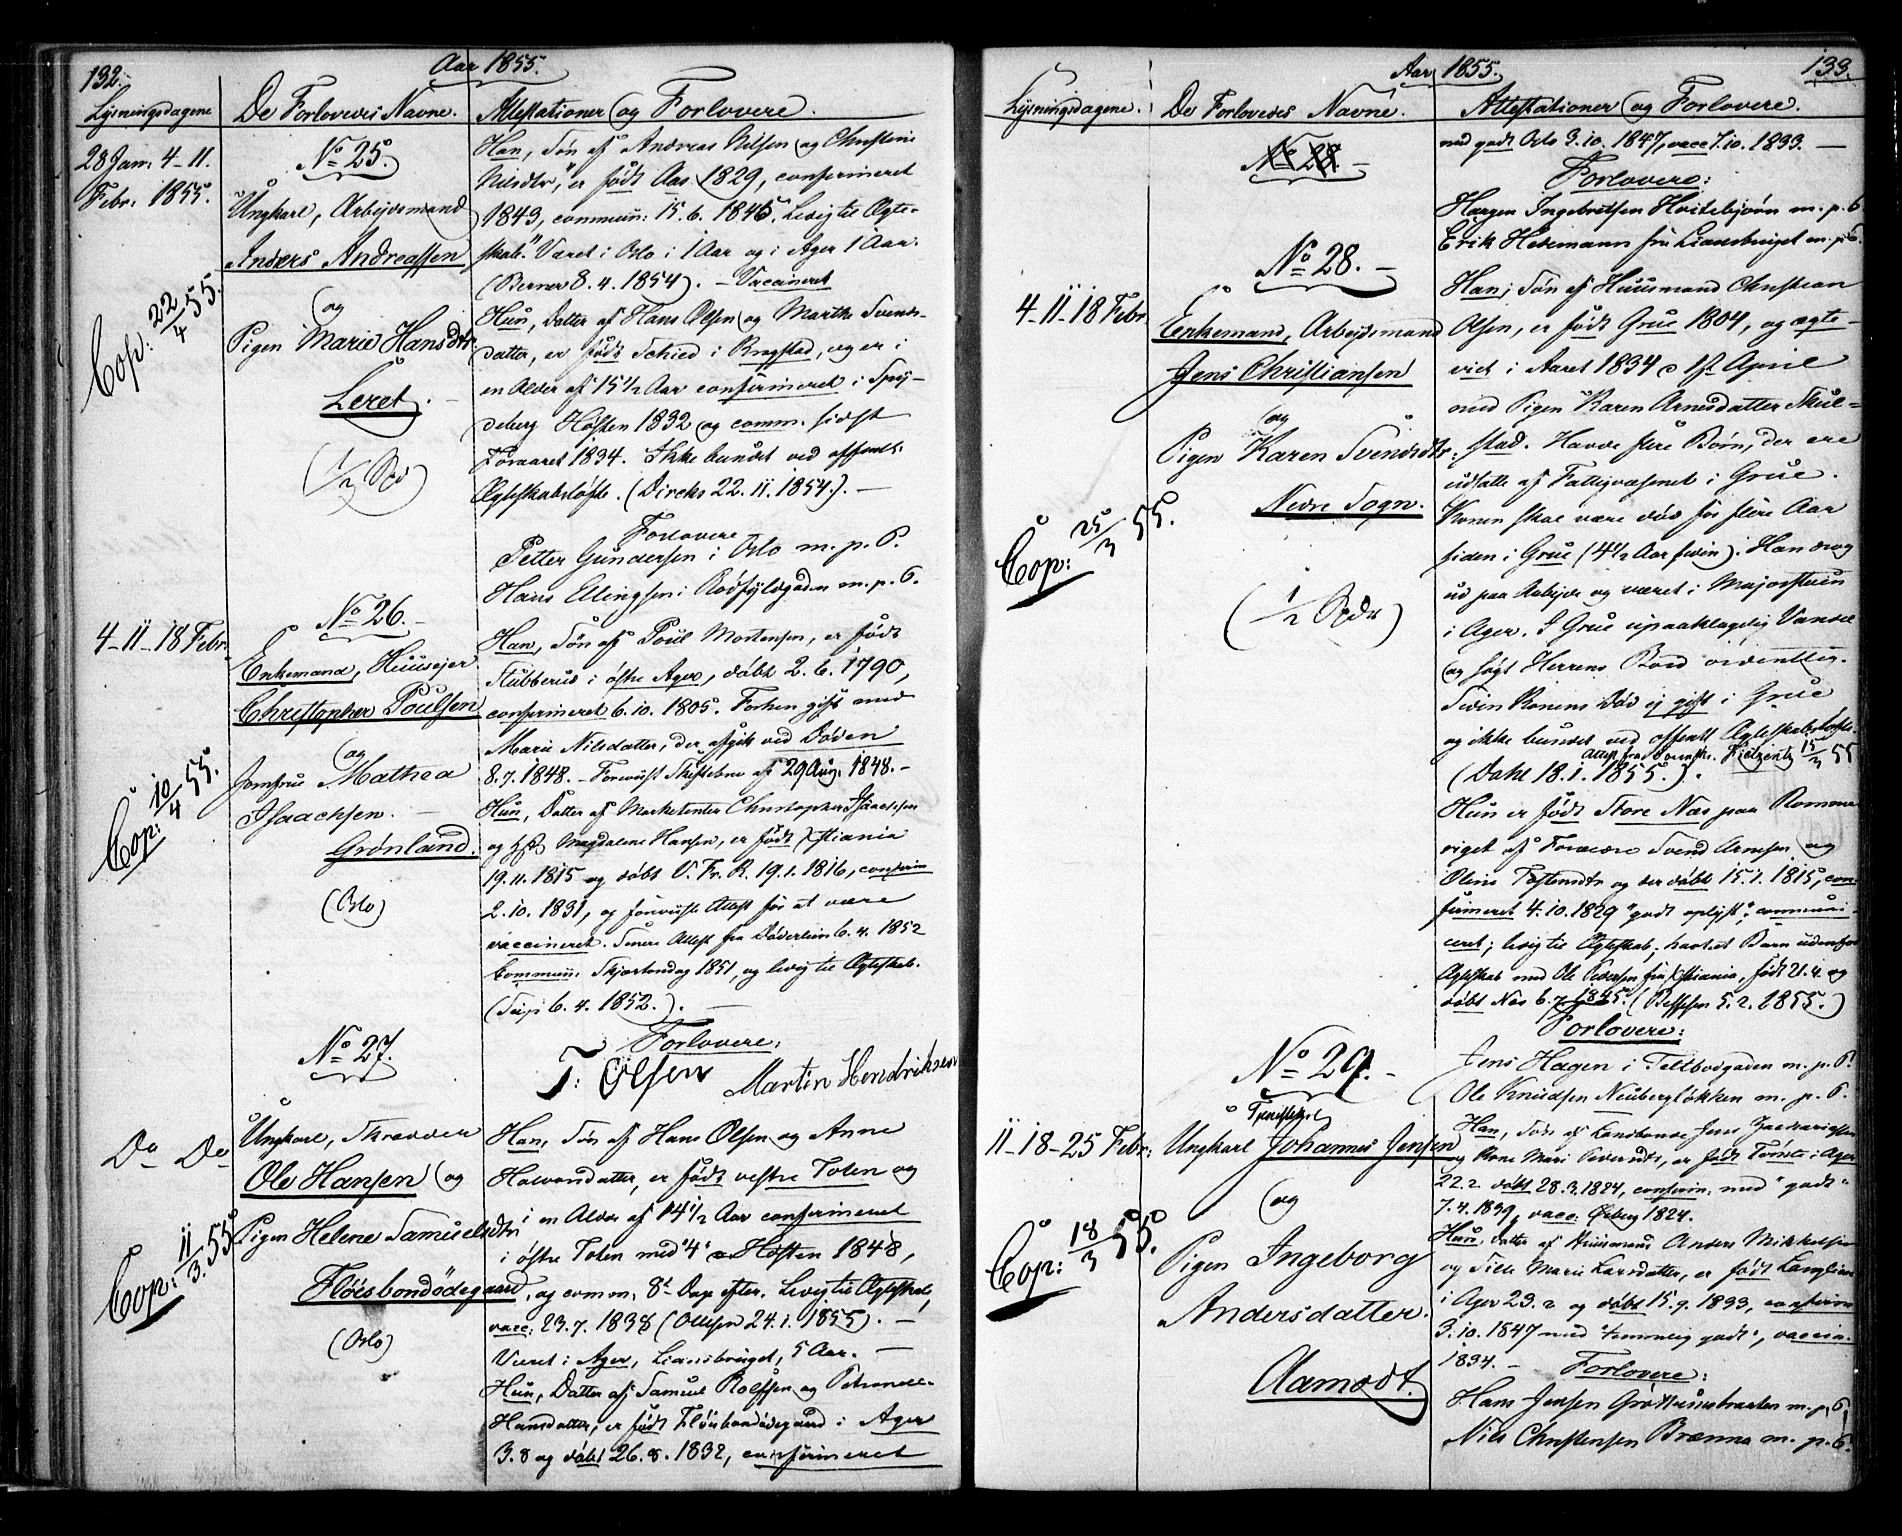 132.
Aar 1855.
Lysningsdagene
De Forlovedes Navne.
Attestationer og Forlovere.
28 Jan: 4-11.
Febr. 1855.
Cop: 22/4 55.
No 25.
Ungkarl, Arbejdsmand
Anders Andreassen
og
Pigen Marie Hansdtr
Leret.
(1/2 Spd)
Han, Søn af Andreas Nilsen og Christine
Nilsdtr, er født Aas 1829, confirmeret
1843, commun: 15.6. 1845. Ledig til Ægte-
skab." Været i Oslo i 1 Aar og i Ager 1 Aar.
(Berner 8.4.1854). - Vaccineret
Hun, Datter af Hans Olsen og Marthe Svends-
datter, er født Schied i Ringstad, og er i
en Alder af 15 1/2 Aar confirmeret i Spy-
deberg Høsten 1832 og comm. sidst
Foraaret 1834. Ikke bundet ved offentl.
Ægteskabsløfte. (Dircks 22.11.1854). -
Forlovere
Petter Gundersen i Oslo m. p. P.
Hans Elingsen i Rødfyldgaden m. p. P.
4-11-18 Febr.
Cop: 10/4 55.
No 26.
Enkemand, Huusejer
Christopher Poulsen
og
Jomfrue Mathea
Isaachsen.
Grønland.
(Oslo)
Han, Søn af Poul Mortensen, er født
Stubberud i østre Ager, døbt 2.6.1790,
confirmeret 6.10.1805. Forhen gift med
Marie Nilsdatter, der afgik ved Døden
8.7.1848. - Foreviist Skiftebrev af 29 Aug: 1848. -
Hun, Datter af Marketenter Christopher Isaachsen
og Magdalene Hansen, er født Xstiania
19.11.1815 og døbt V. Fr. K. 19.1.1816, confirm
2.10.1831, og foreviist Attest for at være
vaccineret. Senere Attest fra Døderlein 6.4.1852
Commun: Skjærtorsdag 1851, og ledig til Ægteskab.
6.4.1852.). -
Forlovere:
T: Olsen Martin Hendriksen
Do Do
Cop: 11/3. 55
No 27.
Ungkarl, Skrædder
Ole Hansen og
Pigen Helene Samuelsdtr
Fløisbondødegaard
(Oslo)
Han, Søn af Hans Olsen og Anne
Halvorsdatter, er født vestre Toten og
i en Alder af 14 1/2 Aar confirmeret
i østre Toten med "4" Høsten 1848,
og comm. 8d Dage efter. Ledig til Ægteskab,
vacc: 23.7.1838 (Ottesen 24.1.1855). -
Været i Ager, Liansbruget, 5 Aar. -
Hun, Datter af Samuel Rolfsen og Petronelle
Hansdatter, er født Fløisbondødegaard i Ager
3.8 og døbt 26.8.1832, confirmeret
Aar 1855.
133.
Lysningsdagene.
De Forlovedes Navne.
Attestationer og Forlovere.
No 28. -
med godt Oslo 3.10.1847, vacc 7.10.1833. -
Forlovere:
Hagen Ingebretsen Hvitebjørn m. p. P.
Erik Hedemann fra Liansbruget m. p. P.
4-11-18 Febr
Cop: 25/3 55.
No 28. -
Enkemand, Arbejdsmand
Jens Christiansen
og
Pigen Karen Svendsdtr.
Nedre Sogn.
(1/2 Spdr)
Han, Søn af Huusmand Christian
Olsen, er født Grue 1804, og ægte-
viet i Aaret 1834 April
med Pigen Karen Arnesdatter Skul-
stad. Havde flere Børn, der ere
udsatte af Fattigvæsenet i Grue.
Konen skal være død for flere Aar
siden i Grue (4 1/2 Aar siden). Han drog
ud paa Arbejde og været i Majorstuen
i Ager. I Grue upaaklagelig Vandel
og søgt Herrens Bord ordentlig.
Siden Konens Død ej gift i Grue
og ikke bundet ved offentl Ægteskabsløfte.
(Dahl 18.1.1855.). 15/3 55
Hun er født Store Næs paa Rome-
riget af Forældre Svend Arnesen og
Oline Tostensdtr og der døbt 15.1.1815, con-
firmeret 4.10.1829 "godt oplyst", communi-
ceret; ledig til Ægteskab; havt et Barn udenfor
Ægteskab med Ole Pedersen fra Xstiania, født 21.4 og
døbt Næs 6.7.1845. (Bessesen 5.2.1855.)
Forlovere:
Jens Hagen i Toldbodgaden m. p. P.
Ole Knudsen Neuberglökken m. p. P.
11-18-25 Febr:
Cop: 18/3 55.
No 29. -
Ungkarl Johannes Jensen
og
Pigen Ingeborg
Andersdatter.
Aamodt.
Han, Søn af Landbonde Jens Zachariassen
og Kone Mari Pedersdtr, er født Tømte i Ager
22.2 døbt 28.3.1824, confirm: med "godt"
7.4.1839, vacc: Øsberg 1824.
Hun, Datter af Huusmand Anders Mikkelsen
og Sille Marie Larsdatter, er født Langlien
i Ager 23.2 og døbt 15.9.1833, confirm
3.10.1847 med "temmelig godt", vaccin.
1834. -
Forlovere:
Hans Jensen m. p. P.
Nils Christensen Brænna m. p. P.